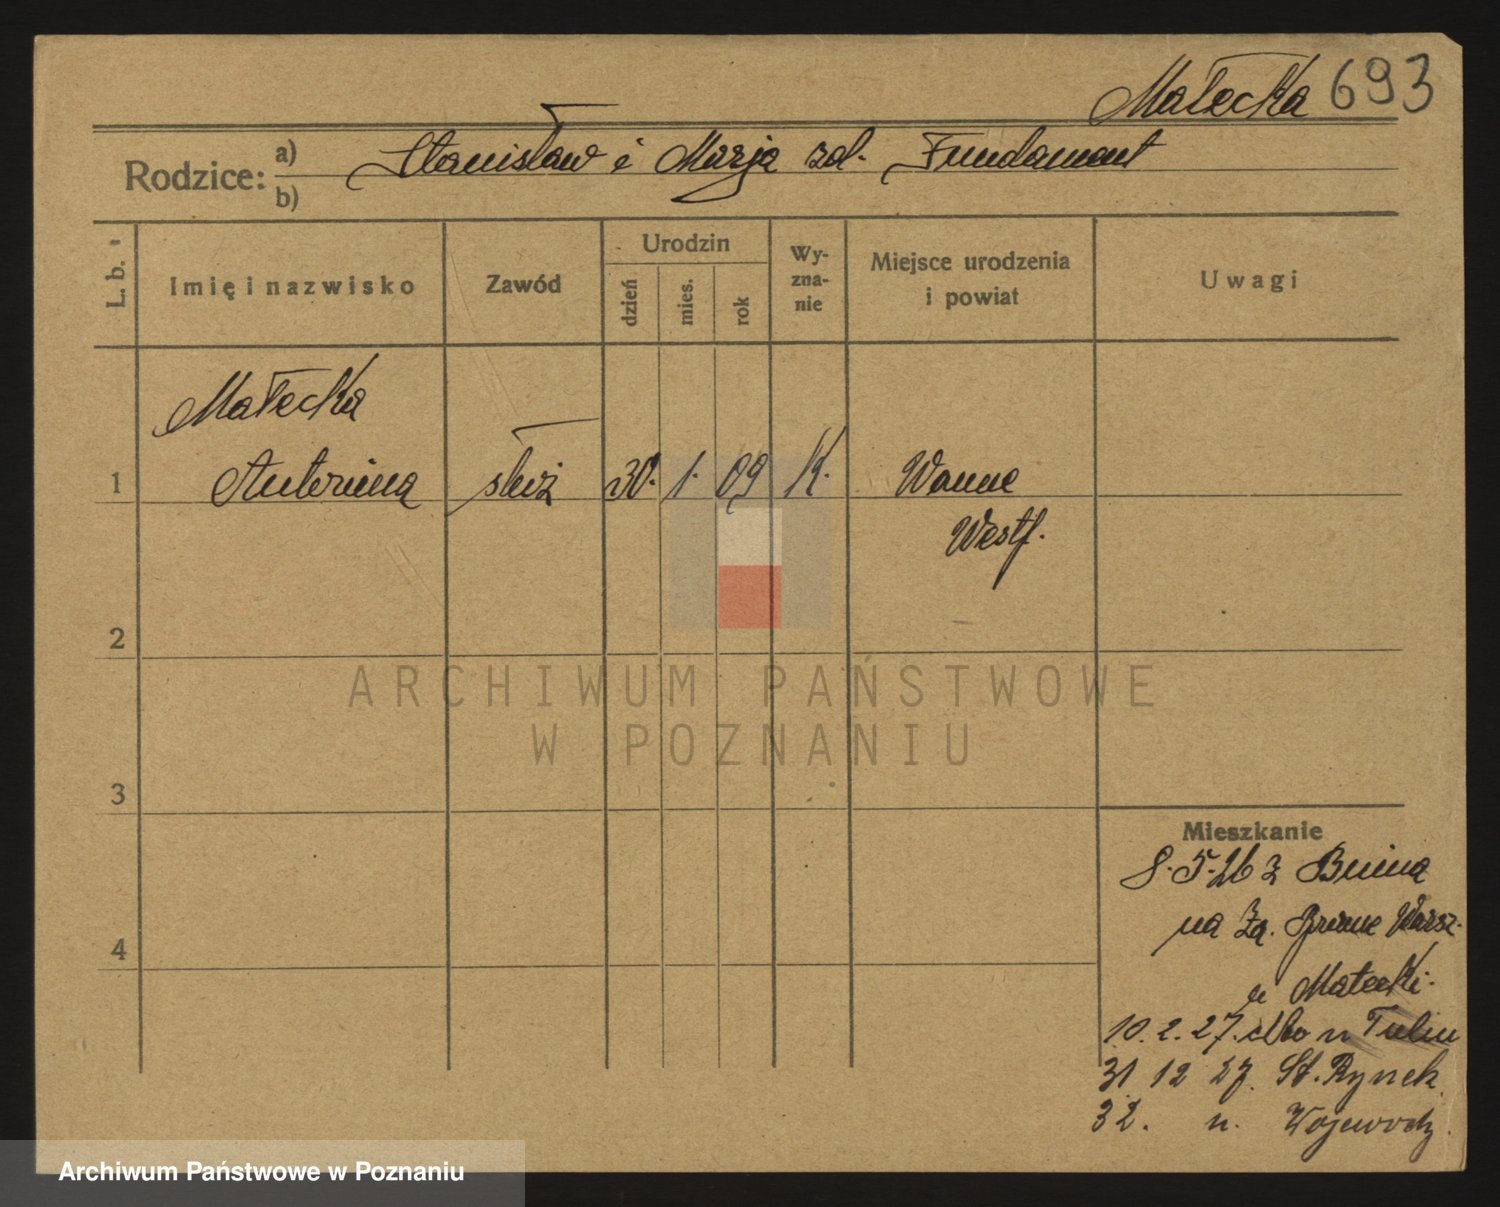 Małecka 693
Rodzice: a) b)
Stanisław i Marja zd. Fundament
L. b.
Imię i nazwisko
Zawód
Urodzin
dzień
mies.
rok
Wy-
zna-
nie
Miejsce urodzenia
i powiat
Uwagi
Małecka
1 Antonina służ 30. 1. 09 K. Wanne
Westf.
2
3
4
ARCHIWUM PAŃSTWOWE
W POZNANIU
Mieszkanie
8.5.26 z Bnina
na Zg. Warsz.
u Małecki.
10.2.27. dto u
31 12 27. St. Rynek
32. u. Wojewodz.
Archiwum Państwowe w Poznaniu